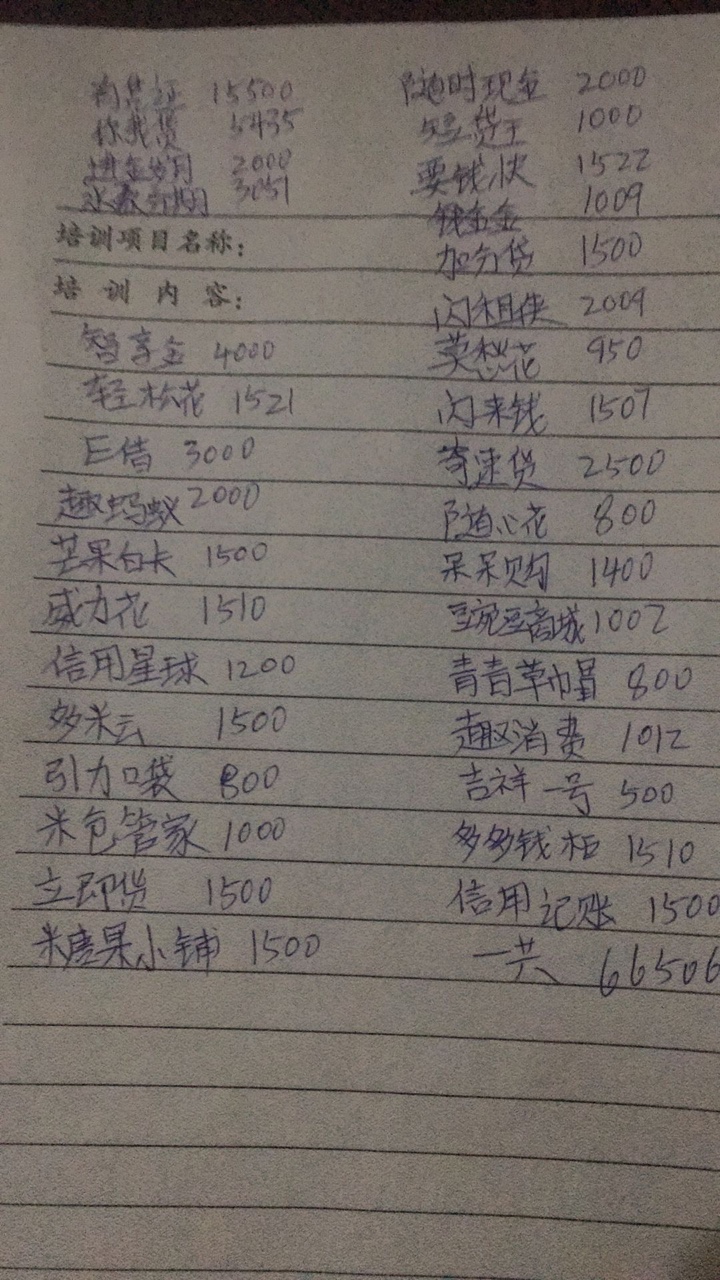 15500
你我贷 5435
2000
3051
培训项目名称：
培训内容：
智享金 4000
轻松花 1521
巨借 3000
趣蚂蚁 2000
芒果白卡 1500
威力花 1510
信用星球 1200
多米云 1500
引力口袋 800
米包管家 1000
立即贷 1500
糖果小铺 1500
随时现金 2000
贷王 1000
要钱快 1522
钱金金 1009
加分贷 1500
闪租侠 2009
莫愁花 950
闪来钱 1507
奇速贷 2500
随心花 800
呆呆购 1400
豌豆商城 1002
青青草帽 800
趣消费 1012
吉祥一号 500
多多钱柜 1510
信用记账 1500
一共 66506